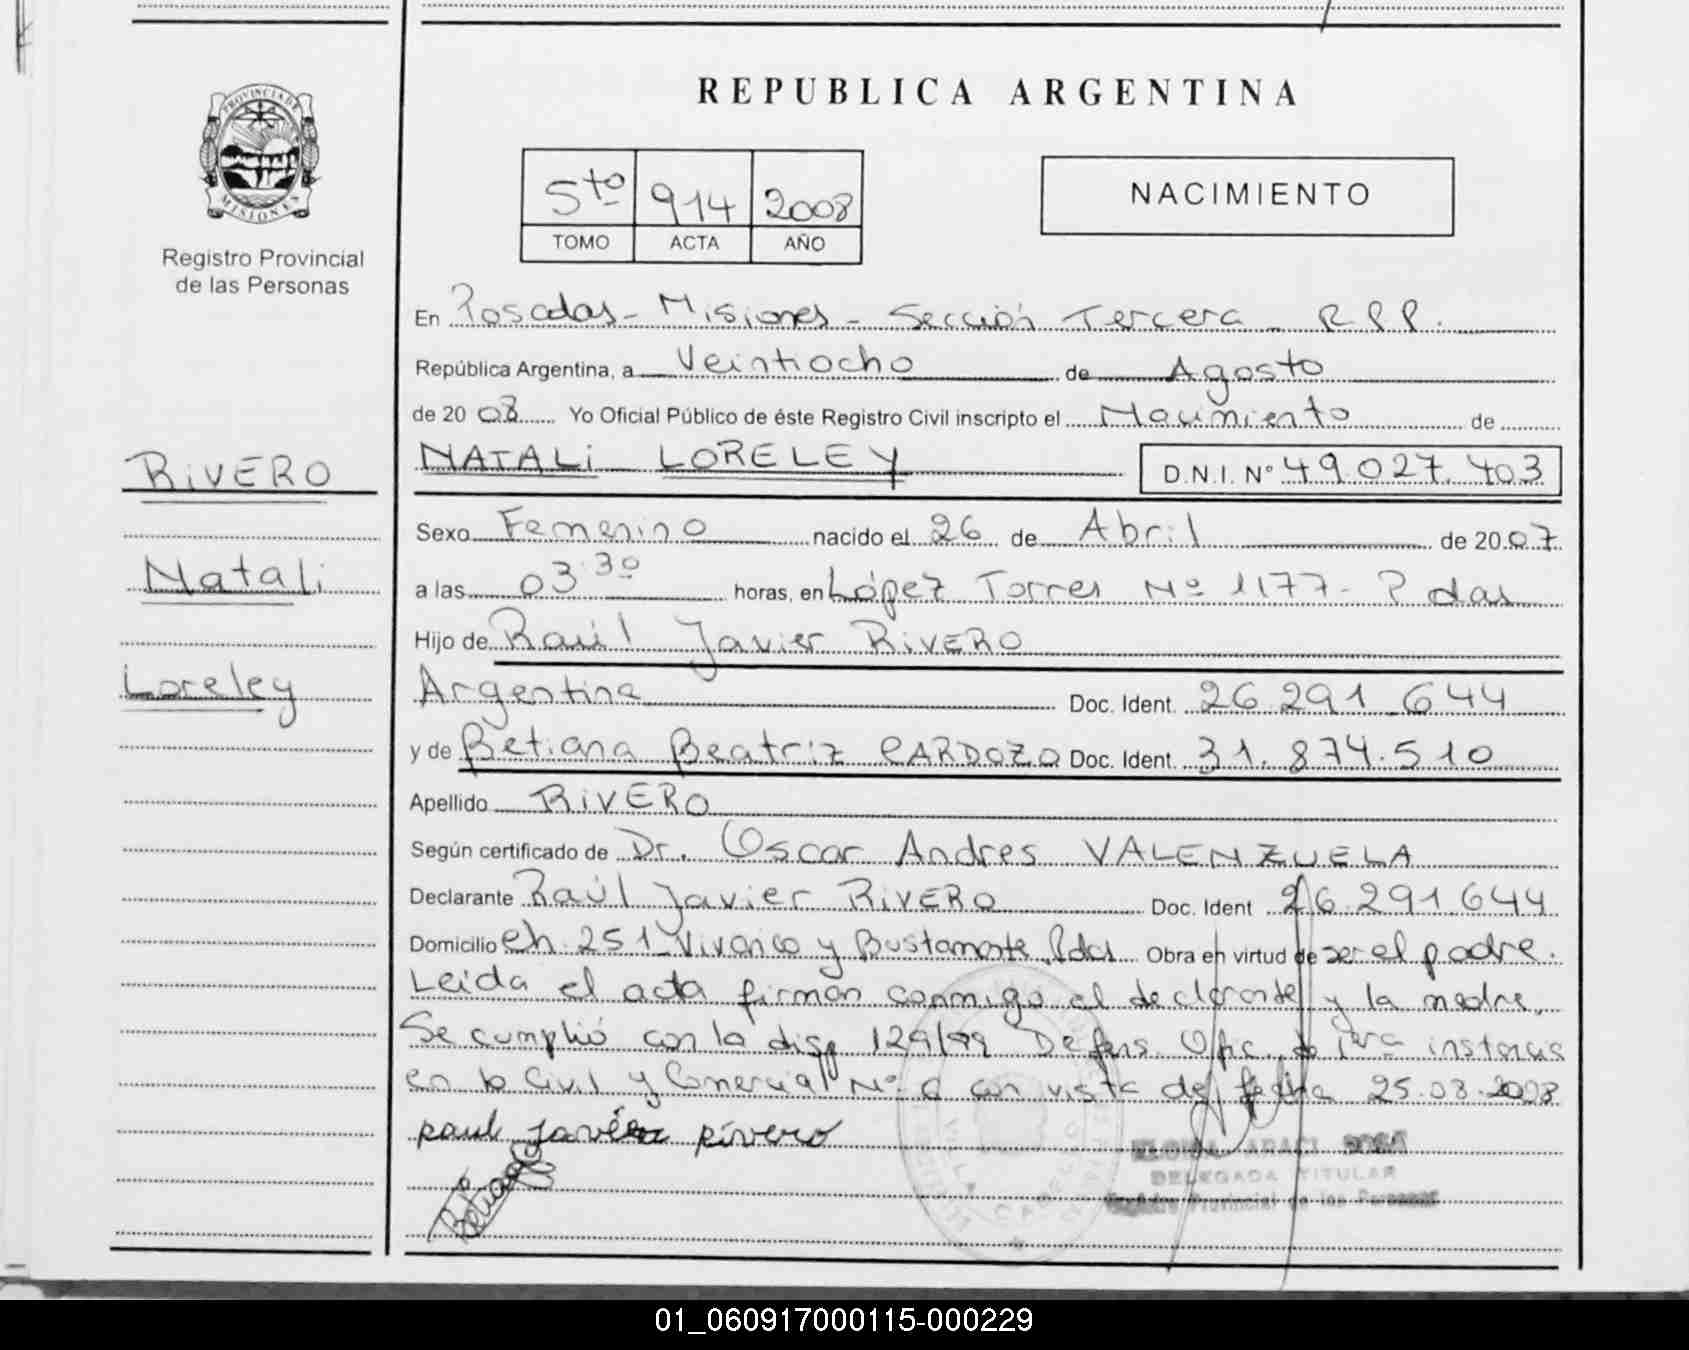 REPUBLICA ARGENTINA
PROVINCIA DE
MISIONES
Registro Provincial
de las Personas
5to 914 2008
TOMO ACTA AÑO
NACIMIENTO
En Posadas - Misiones - Sección Tercera - R P P.
República Argentina, a Veintiocho de Agosto
de 20 08 Yo Oficial Público de éste Registro Civil inscripto el Nacimiento de
RIVERO
NATALI LORELEY D.N.I. Nº 49.027.403
Sexo Femenino nacido el 26 de Abril de 20 07
Natali
a las 03:30 horas, en López Torres Nº 1177 - P das
Hijo de Raúl Javier RIVERO
Loreley
Argentina Doc. Ident. 26.291.644
y de Betiana Beatriz CARDOZO Doc. Ident. 31.874.510
Apellido RIVERO
Según certificado de Dr. Oscar Andres VALENZUELA
Declarante Raúl Javier RIVERO Doc. Ident 26.291.644
Domicilio Ch. 251 Vivanco y Bustamante Pdas Obra en virtud de ser el padre.
Leida el acta firman conmigo el declarante y la madre,
Se cumplió con la disp 129/99 Defens. Ofic. de 1era instancia
en lo Civil y Comercial Nº 6 con vista de fecha 25.08.2008
raul javier rivero
Betiana
DELEGADA TITULAR
Registro Provincial de las Personas
01_060917000115-000229